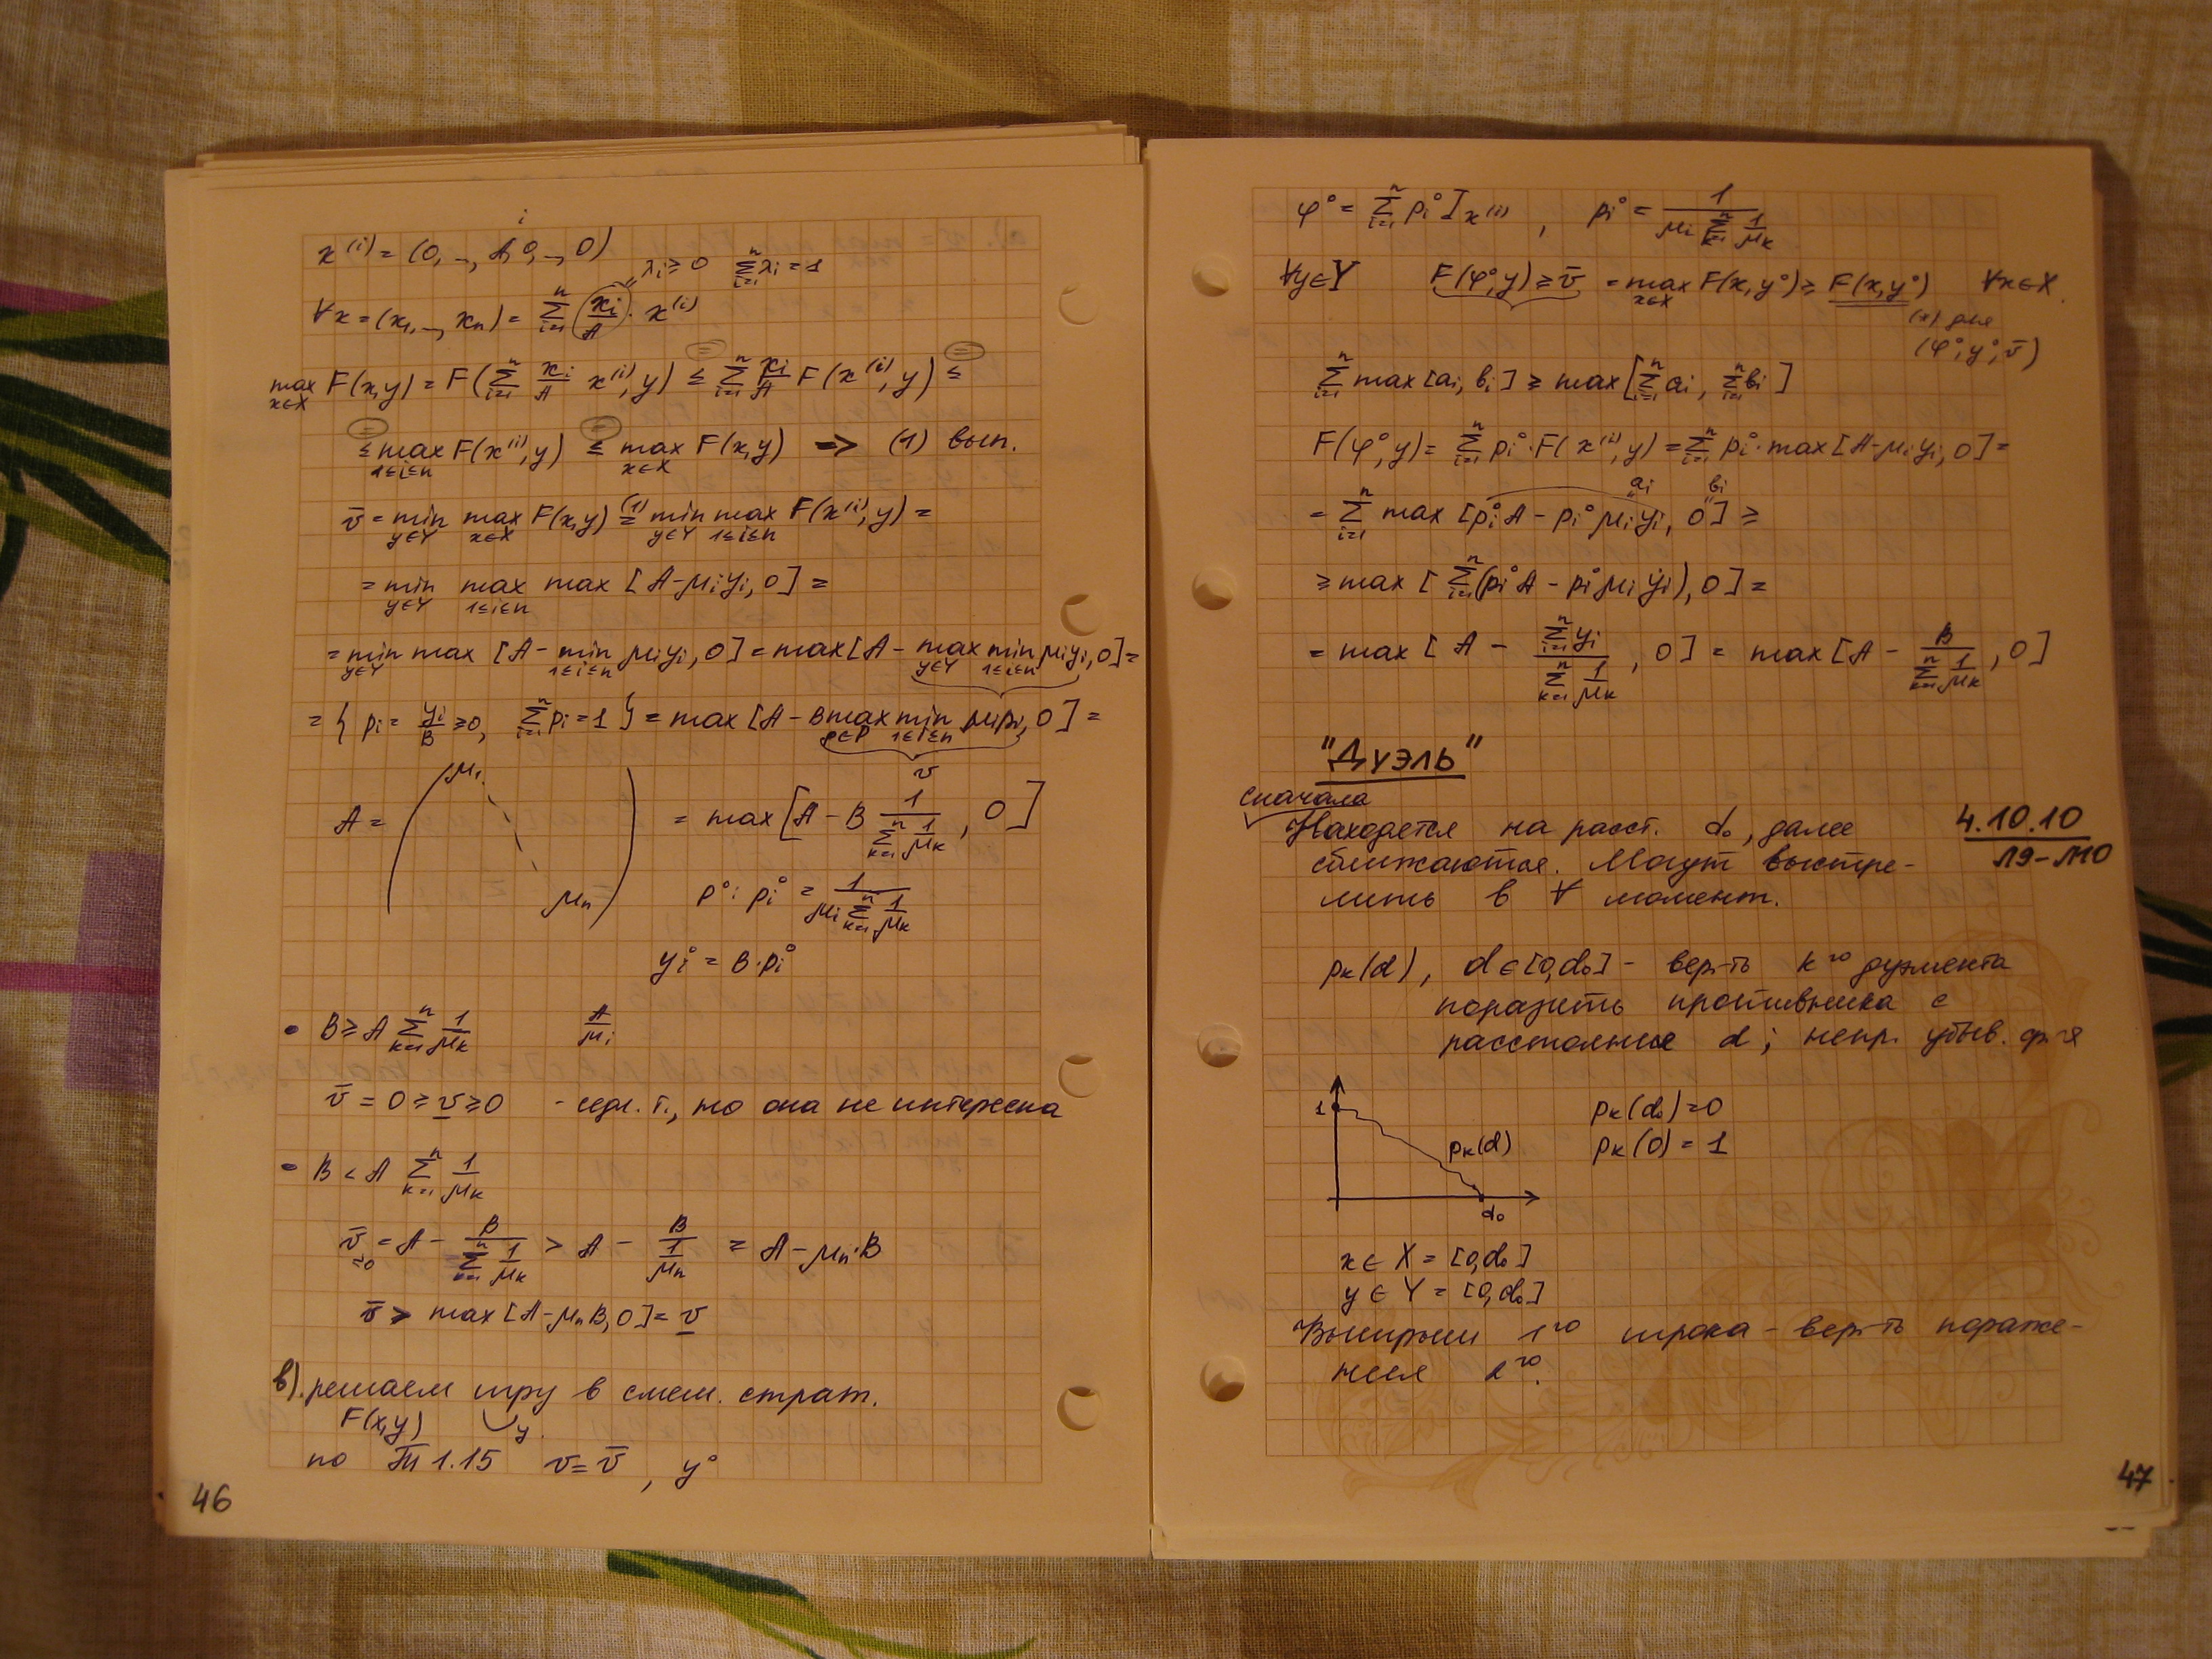 i
x⁽ⁱ⁾ = (0, .., A, 0, .., 0)
λᵢ ≥ 0 Σᵢ₌₁ⁿ λᵢ = 1
∀x = (x₁, .., xₙ) = Σᵢ₌₁ⁿ (xᵢ/A) · x⁽ⁱ⁾
max_{x∈X} F(x,y) = F(Σᵢ₌₁ⁿ xᵢ/A x⁽ⁱ⁾, y) ≤ Σᵢ₌₁ⁿ xᵢ/A F(x⁽ⁱ⁾, y) ≤
≤ max_{1≤i≤n} F(x⁽ⁱ⁾, y) ≤ max_{x∈X} F(x,y) ⇒ (1) вып.
v̄ = min_{y∈Y} max_{x∈X} F(x,y) =⁽¹⁾ min_{y∈Y} max_{1≤i≤n} F(x⁽ⁱ⁾, y) =
= min_{y∈Y} max_{1≤i≤n} max [A-μᵢyᵢ, 0] =
= min_{y∈Y} max [A - min_{1≤i≤n} μᵢyᵢ, 0] = max[A - max_{y∈Y} min_{1≤i≤n} μᵢyᵢ, 0] =
= { pᵢ = yᵢ/B ≥ 0, Σᵢ₌₁ⁿ pᵢ = 1 } = max [A - B max_{p∈P} min_{1≤i≤n} μᵢpᵢ, 0] =
v
A = ( μ₁ ... μₙ ) = max [A - B 1/(Σₖ₌₁ⁿ 1/μₖ), 0]
p⁰: pᵢ⁰ = 1/(μᵢ Σₖ₌₁ⁿ 1/μₖ)
yᵢ⁰ = B·pᵢ⁰
• B ≥ A Σₖ₌₁ⁿ 1/μₖ A/μᵢ
v̄ = 0 ≥ v̲ ≥ 0 - седл. т., но она не интересна
• B < A Σₖ₌₁ⁿ 1/μₖ
v̄ = A - B/(Σₖ₌₁ⁿ 1/μₖ) > A - B/(1/μₙ) = A - μₙ·B
v̄ > max [A-μₙB, 0] = v̲
в). решаем игру в смеш. страт.
F(x,y) у
по Тт 1.15 v = v̄, y⁰
46
φ⁰ = Σᵢ₌₁ⁿ pᵢ⁰ I_{x⁽ⁱ⁾}, pᵢ⁰ = 1/(μᵢ Σₖ₌₁ⁿ 1/μₖ)
∀y∈Y F(φ⁰,y) ≥ v̄ = max_{x∈X} F(x,y⁰) ≥ F(x,y⁰) ∀x∈X
(*) для
(φ⁰, y⁰, v̄)
Σᵢ₌₁ⁿ max [aᵢ, bᵢ] ≥ max [Σᵢ₌₁ⁿ aᵢ, Σᵢ₌₁ⁿ bᵢ]
F(φ⁰,y) = Σᵢ₌₁ⁿ pᵢ⁰·F(x⁽ⁱ⁾,y) = Σᵢ₌₁ⁿ pᵢ⁰·max [A-μᵢyᵢ, 0] =
aᵢ bᵢ
= Σᵢ₌₁ⁿ max [pᵢ⁰A - pᵢ⁰μᵢyᵢ, 0] ≥
≥ max [Σᵢ₌₁ⁿ (pᵢ⁰A - pᵢ⁰μᵢyᵢ), 0] =
= max [A - (Σᵢ₌₁ⁿ yᵢ)/(Σₖ₌₁ⁿ 1/μₖ), 0] = max [A - B/(Σₖ₌₁ⁿ 1/μₖ), 0]
"Дуэль"
сначала
Находятся на расст. d₀, далее
4.10.10
Л9-Л10
сближаются. Могут выстре-
лить в ∀ момент.
pₖ(d), d∈[0,d₀] - вер-ть kᵒᵍᵒ дуэлянта
поразить противника с
расстояние d; непр. убыв. ф-я
1
pₖ(d)
d₀
pₖ(d₀)=0
pₖ(0)=1
x∈X = [0,d₀]
y∈Y = [0,d₀]
Выигрыш 1ᵍᵒ игрока - вер-ть пораже-
ния 2ᵍᵒ.
47